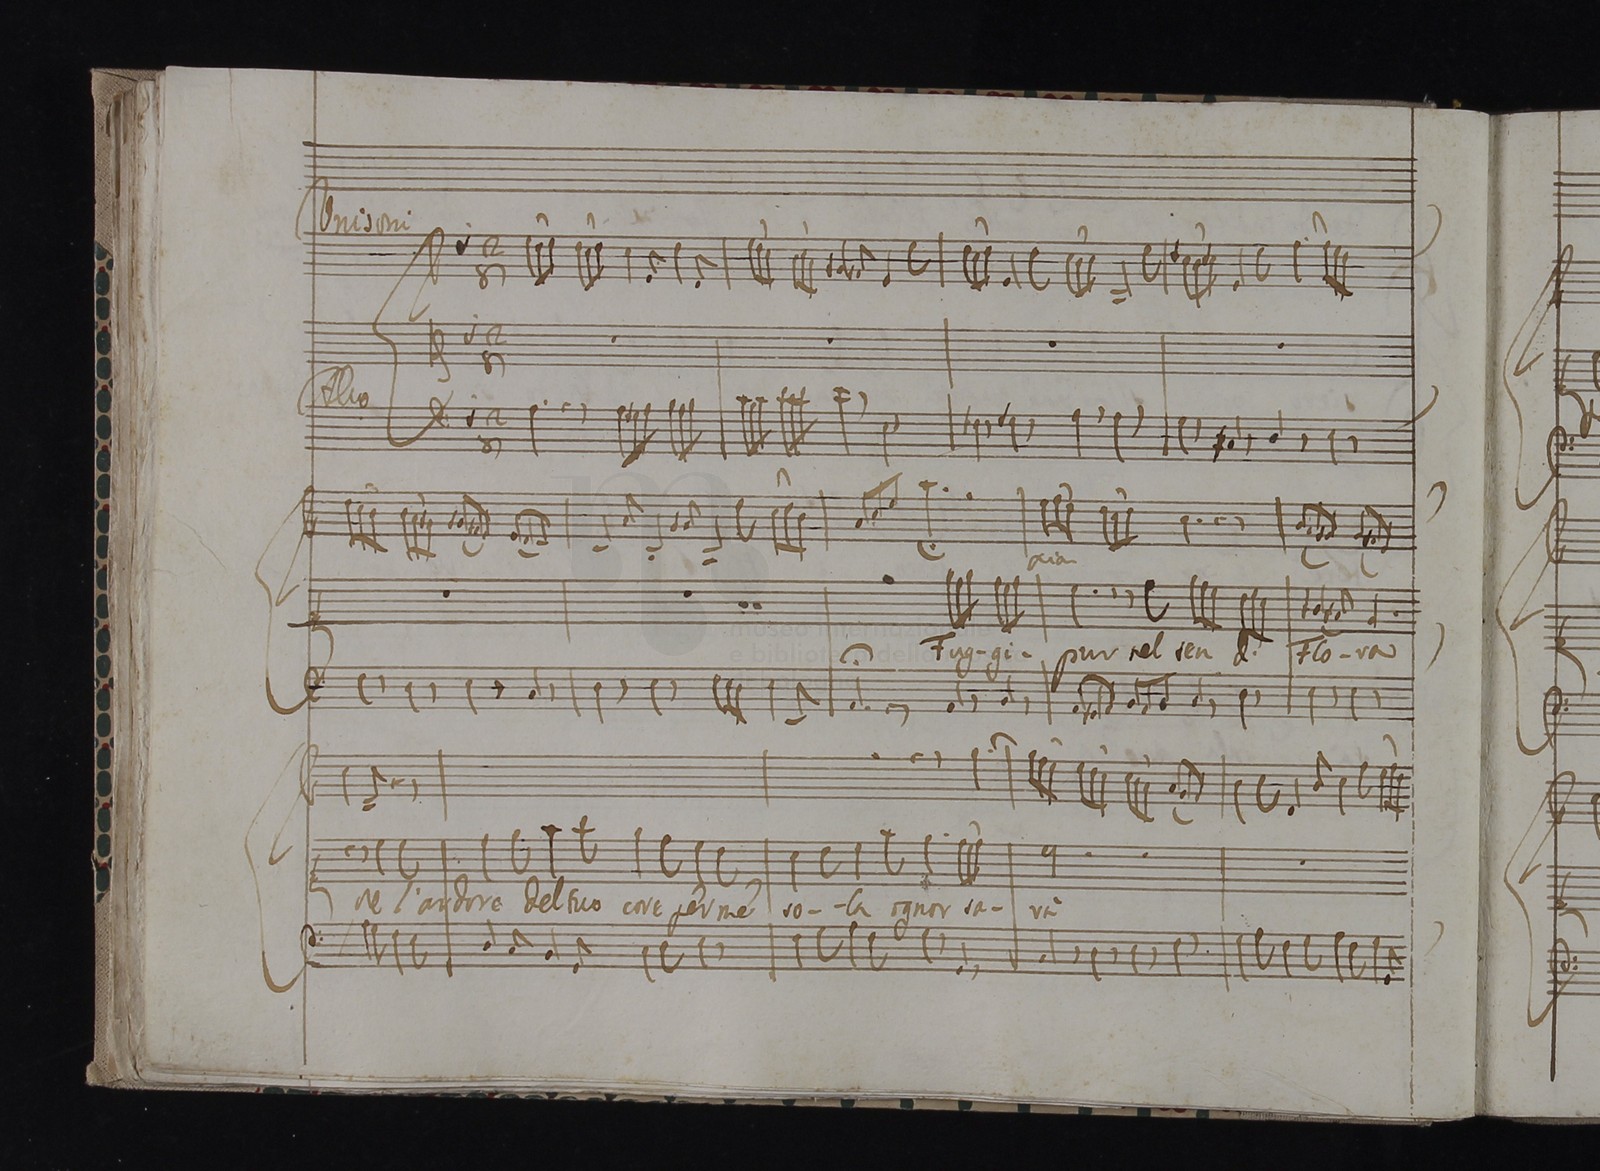 Unisoni
Allo
pia
museo internazionale
e biblioteca della
Fug-gi- pur nel sen di Flo-ra
ne l'ardore del suo core per me so--la ognor sa- rà